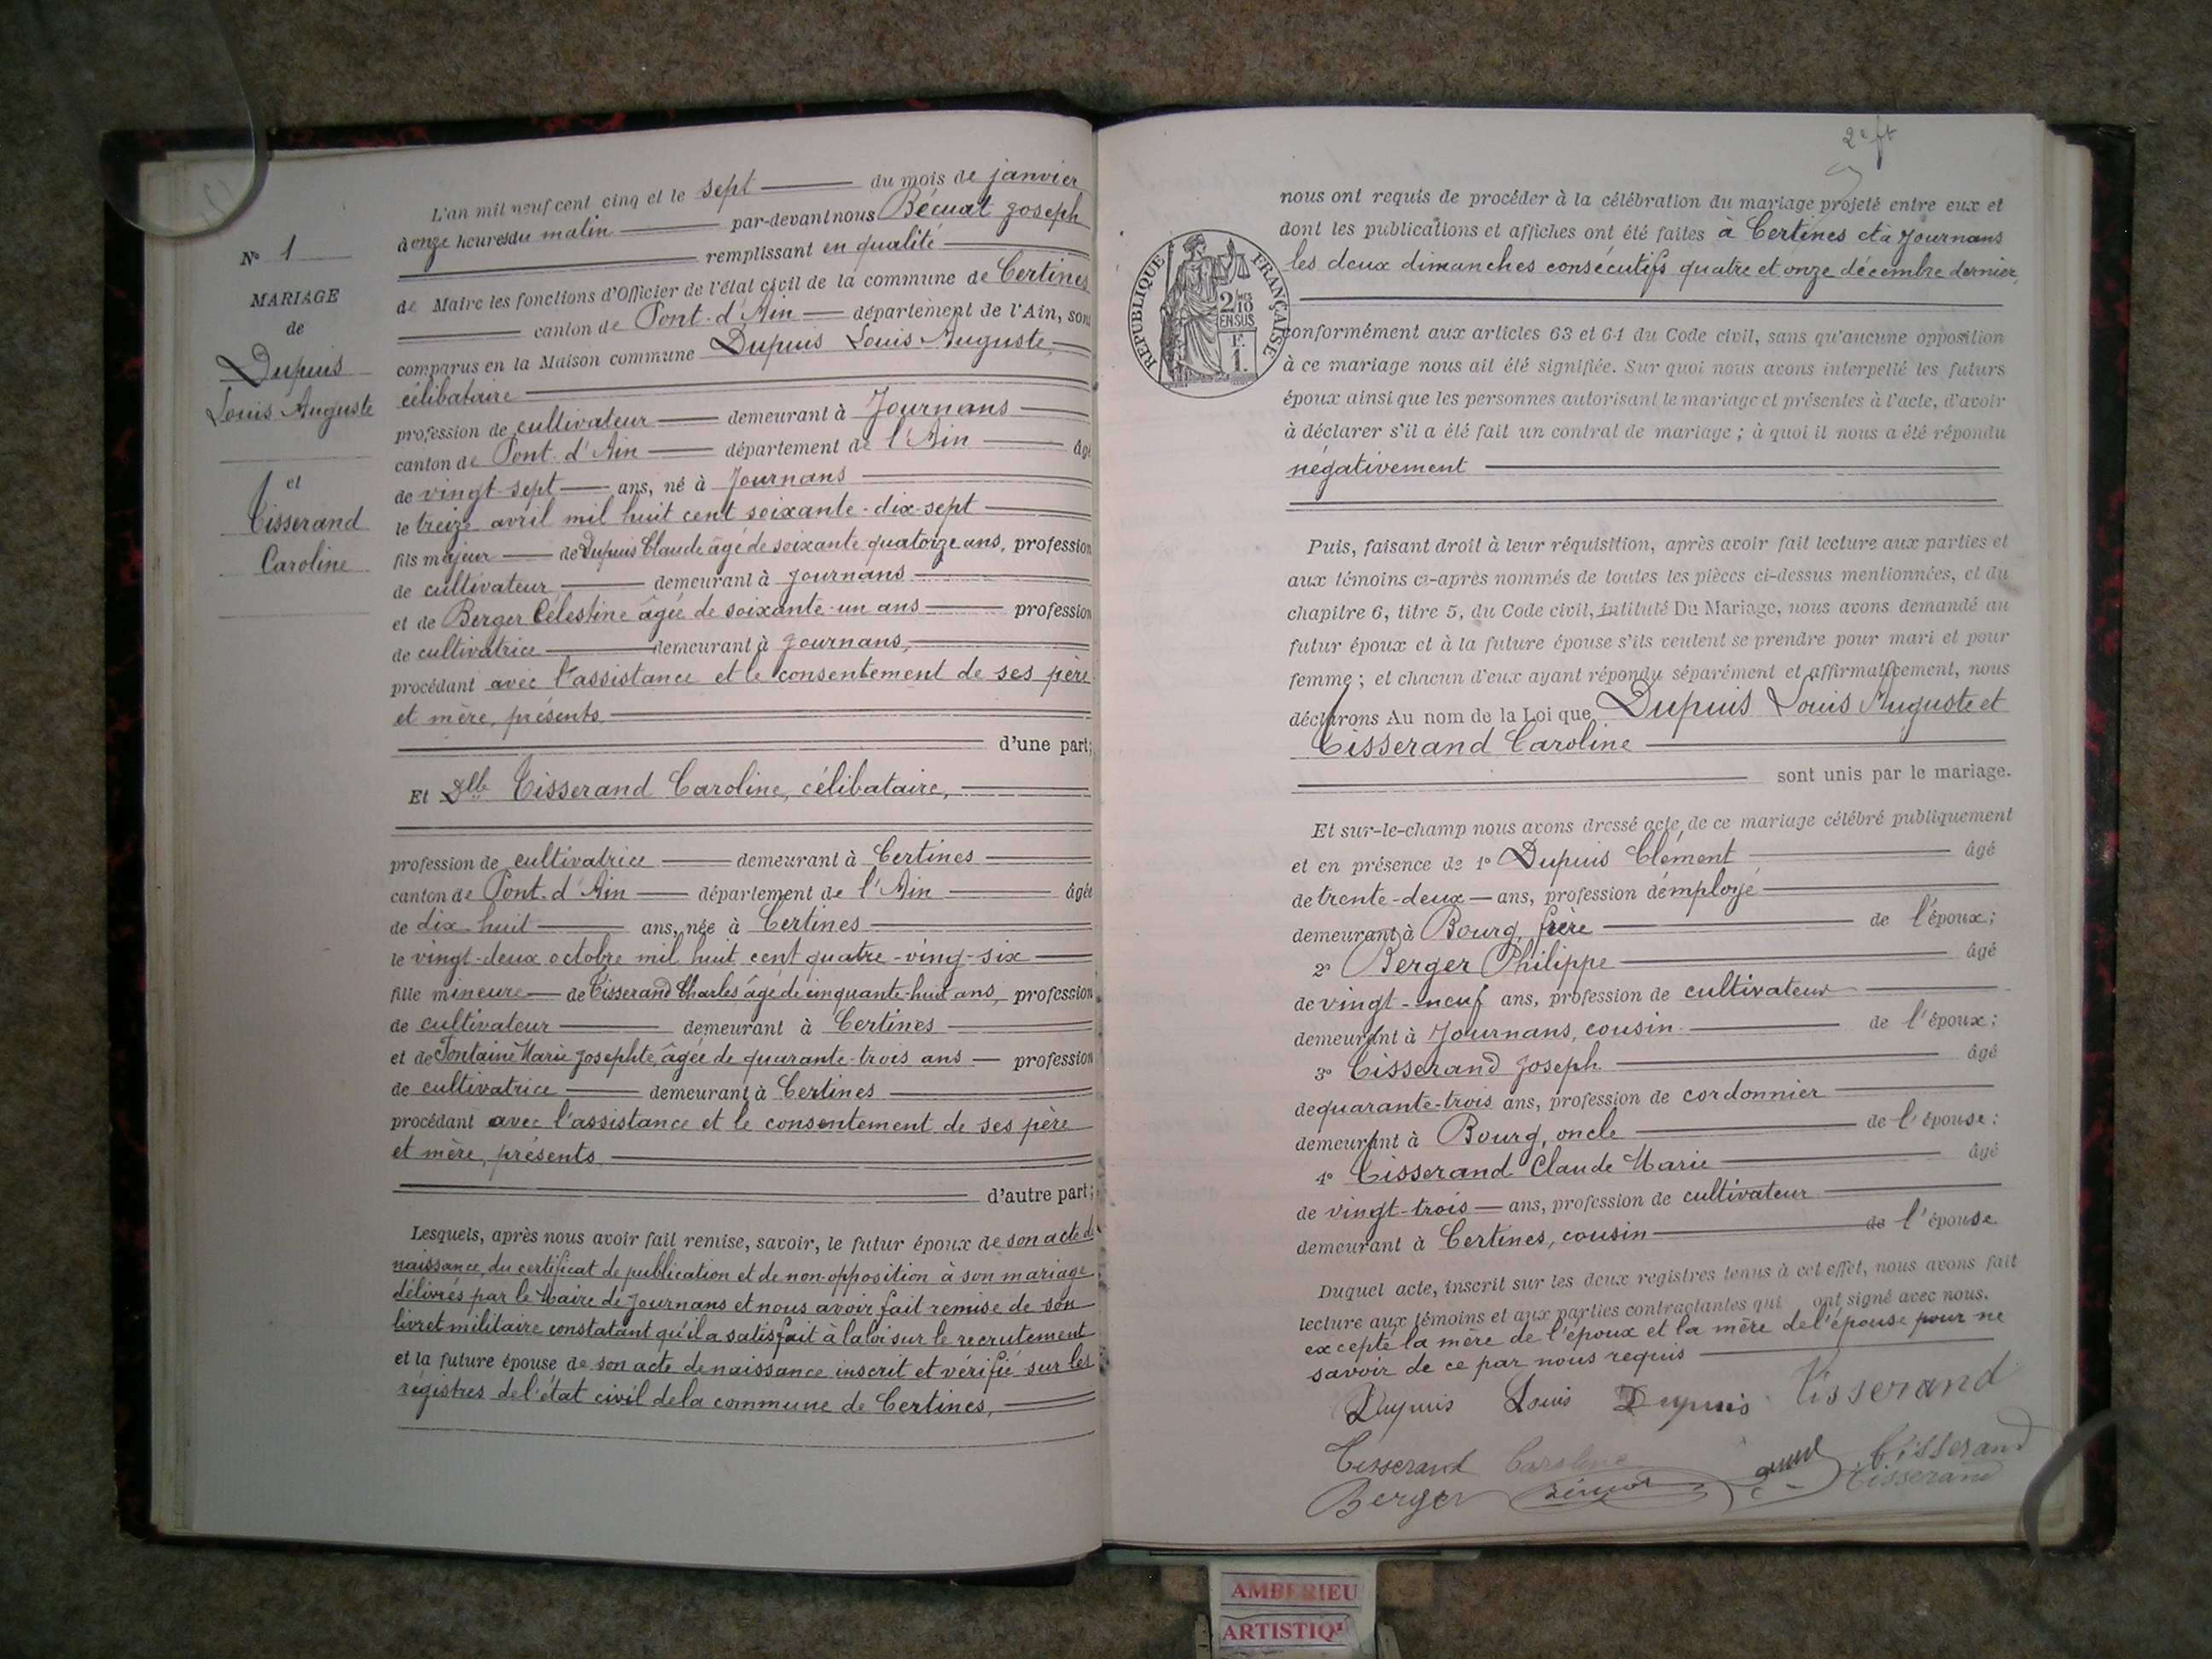 N° 1
MARIAGE
de
Dupuis
Louis Auguste
et
Tisserand
Caroline
L'an mil neuf cent cinq et le sept du mois de janvier
à onze heures du matin par-devant nous Bécuat Joseph
remplissant en qualité
de Maire les fonctions d'Officier de l'état civil de la commune de Certines
canton de Pont-d'Ain département de l'Ain, sont
comparus en la Maison commune Dupuis Louis Auguste,
célibataire
profession de cultivateur demeurant à Journans
canton de Pont-d'Ain département de l'Ain âgé
de vingt-sept ans, né à Journans
le treize avril mil huit cent soixante-dix-sept
fils majeur de Dupuis Claude âgé de soixante quatorze ans, profession
de cultivateur demeurant à Journans
et de Berger Célestine âgée de soixante-un ans profession
de cultivatrice demeurant à Journans,
procédant avec l'assistance et le consentement de ses père
et mère, présents
d'une part;
Et Dlle Tisserand Caroline, célibataire,
profession de cultivatrice demeurant à Certines
canton de Pont-d'Ain département de l'Ain âgée
de dix-huit ans, née à Certines
le vingt-deux octobre mil huit cent quatre-ving-six
fille mineure de Tisserand Charles âgé de cinquante-huit ans, profession
de cultivateur demeurant à Certines
et de Fontaine Marie Josephte, âgée de quarante-trois ans profession
de cultivatrice demeurant à Certines
procédant avec l'assistance et le consentement de ses père
et mère, présents
d'autre part;
Lesquels, après nous avoir fait remise, savoir, le futur époux de son acte de
naissance, du certificat de publication et de non-opposition à son mariage
délivrés par le Maire de Journans et nous avoir fait remise de son
livret militaire constatant qu'il a satisfait à la loi sur le recrutement
et la future épouse de son acte de naissance inscrit et vérifié sur les
régistres de l'état civil de la commune de Certines,
2e ft
nous ont requis de procéder à la célébration du mariage projeté entre eux et
dont les publications et affiches ont été faites à Certines et à Journans
les deux dimanches consécutifs quatre et onze décembre dernier,
RÉPUBLIQUE FRANÇAISE
2/10MES
EN SUS
F.
1.
conformément aux articles 63 et 64 du Code civil, sans qu'aucune opposition
à ce mariage nous ait été signifiée. Sur quoi nous avons interpellé les futurs
époux ainsi que les personnes autorisant le mariage et présentes à l'acte, d'avoir
à déclarer s'il a été fait un contrat de mariage; à quoi il nous a été répondu
négativement
Puis, faisant droit à leur réquisition, après avoir fait lecture aux parties et
aux témoins ci-après nommés de toutes les pièces ci-dessus mentionnées, et du
chapitre 6, titre 5, du Code civil, intitulé Du Mariage, nous avons demandé au
futur époux et à la future épouse s'ils veulent se prendre pour mari et pour
femme; et chacun d'eux ayant répondu séparément et affirmativement, nous
déclarons Au nom de la Loi que Dupuis Louis Auguste et
Tisserand Caroline
sont unis par le mariage.
Et sur-le-champ nous avons dressé acte de ce mariage célébré publiquement
et en présence de 1° Dupuis Clément âgé
de trente-deux ans, profession d'employé
demeurant à Bourg, frère de l'époux;
2° Berger Philippe âgé
de vingt-neuf ans, profession de cultivateur
demeurant à Journans, cousin de l'époux;
3° Tisserand Joseph âgé
de quarante-trois ans, profession de cordonnier
demeurant à Bourg, oncle de l'épouse:
4° Tisserand Claude Marie âgé
de vingt-trois ans, profession de cultivateur
demeurant à Certines, cousin de l'épouse
Duquel acte, inscrit sur les deux registres tenus à cet effet, nous avons fait
lecture aux témoins et aux parties contractantes qui ont signé avec nous.
excepté la mère de l'époux et la mère de l'épouse pour ne
savoir de ce par nous requis
Dupuis Louis Dupuis Tisserand
Tisserand Caroline Tisserand
Berger Bécuat Tisserand
AMBERIEU
ARTISTIQ